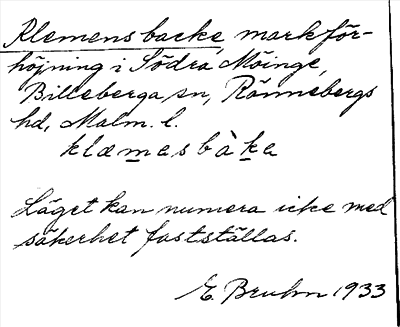 Klemensbacke, markför-
höjning i Södra Möinge,
Billeberga sn, Rönnebergs
hd, Malm. l.
klæmesbàka
Läget kan numera icke med
säkerhet fastställas.
E. Bruhn 1933